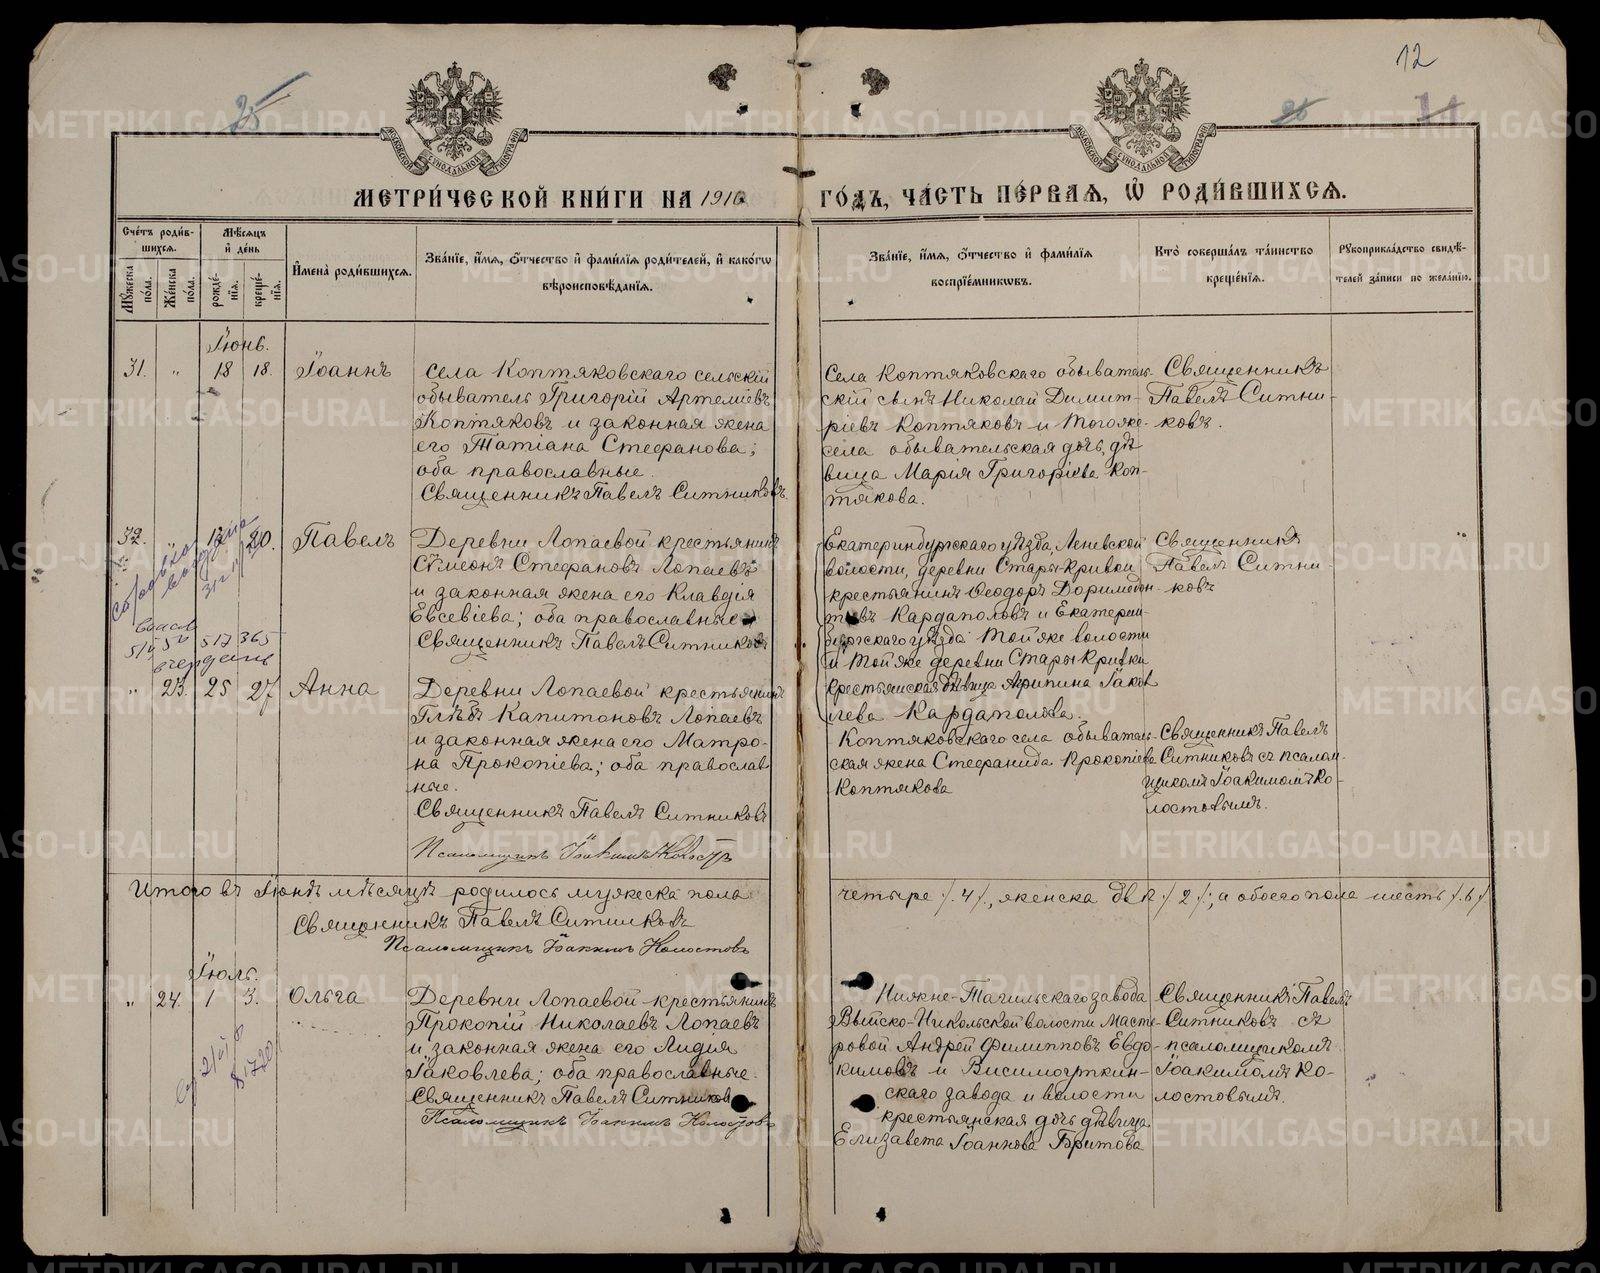 12
25
26
МЕТРИ́ЧЕСКОЙ КНИ́ГИ НА 1910
ГО́ДЪ, ЧА́СТЬ ПЕ́РВАЯ, Ѡ҆ РОДИ́ВШИХСѦ.
Сче́тъ роди́в-
шихсѧ.
Мꙋ́жеска по́ла.
Же́нска по́ла.
Мѣ́сѧцъ
и҆ де́нь
рожде́-
нїѧ.
креще́-
нїѧ.
И҆мена̀ роди́вшихсѧ.
Зва́нїе, и҆́мѧ, ѻ҆́тчество и҆ фами́лїѧ роди́телей, и҆ како́гѡ
вѣроисповѣ́данїѧ.
Зва́нїе, и҆́мѧ, ѻ҆́тчество и҆ фами́лїѧ
воспрїе́мникѡвъ.
Кто̀ соверша́лъ та́инство
креще́нїѧ.
Рꙋкоприкла́дство свидѣ́-
телей за́писи по жела́нїю.
Іюнь.
31. " 18 18. Іоаннъ
села Коптяковскаго сельскій
обыватель Григорій Артеміевъ
Коптяковъ и законная жена
его Татіана Стефанова;
оба православные.
Священникъ Павелъ Ситниковъ
Села Коптяковскаго обыватель-
скій сынъ Николай Димит-
ріевъ Коптяковъ и тогоже
села обывательская дочь, дѣ-
вица Марія Григоріева Коп-
тякова.
Священникъ
Павелъ Ситни-
ковъ.
32. " 20. Павелъ
Деревни Лопаевой крестьянинъ
Сѵмеонъ Стефановъ Лопаевъ
и законная жена его Клавдія
Евсевіева; оба православные
Священникъ Павелъ Ситниковъ
Екатеринбургскаго уѣзда, Леневской
волости, деревни Стары-Кривки
крестьянинъ Ѳеодоръ Доримедон-
товъ Кардаполовъ и Екатерин-
бургскаго уѣзда той же волости
и той же деревни Стары Кривки
крестьянская дѣвица Агрипина Іаков
лева Кардаполова.
Священникъ
Павелъ Ситни
ковъ
517 365
" 23. 25 27 Анна
Деревни Лопаевой крестьянинъ
Глѣбъ Капитоновъ Лопаевъ
и законная жена его Матро-
на Прокопіева; оба православ-
ные.
Священникъ Павелъ Ситниковъ
Псаломщикъ Іоакимъ Колостовъ
Коптяковскаго села обыватель-
ская жена Стефанида Прокопіева
Коптякова
Священникъ Павелъ
Ситниковъ съ псалом-
щикомъ Іоакимомъ Ко-
лостовымъ.
Итого въ Іюнѣ мѣсяцѣ родилось мужеска пола
четыре /.4/., женска двѣ /.2/.; а обоего пола шесть /.6/.
Священникъ Павелъ Ситниковъ
Псаломщикъ Іоакимъ Колостовъ
Іюль.
" 24. 1 3. Ольга
Деревни Лопаевой крестьянинъ
Прокопій Николаевъ Лопаевъ
и законная жена его Лидія
Іаковлева; оба православные.
Священникъ Павелъ Ситниковъ
Псаломщикъ Іоакимъ Колостовъ
Нижне-Тагильскаго завода
Выйско-Никольской волости масте-
ровой Андрей Филипповъ Евдо-
кимовъ и Висимоуткин-
скаго завода и волости
крестьянская дочь дѣвица
Елизавета Іоаннова Бритова
Священникъ Павелъ
Ситниковъ съ
псаломщикомъ
Іоакимомъ Ко-
лостовымъ.